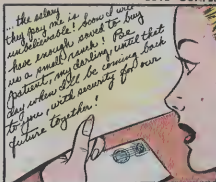 ...the salary
they pay me is
unbelievable! Soon I will
have enough saved to buy
us a small ranch! Be
patient, my darling, until that
day when I'll be coming back
to you, with security for our
future together!